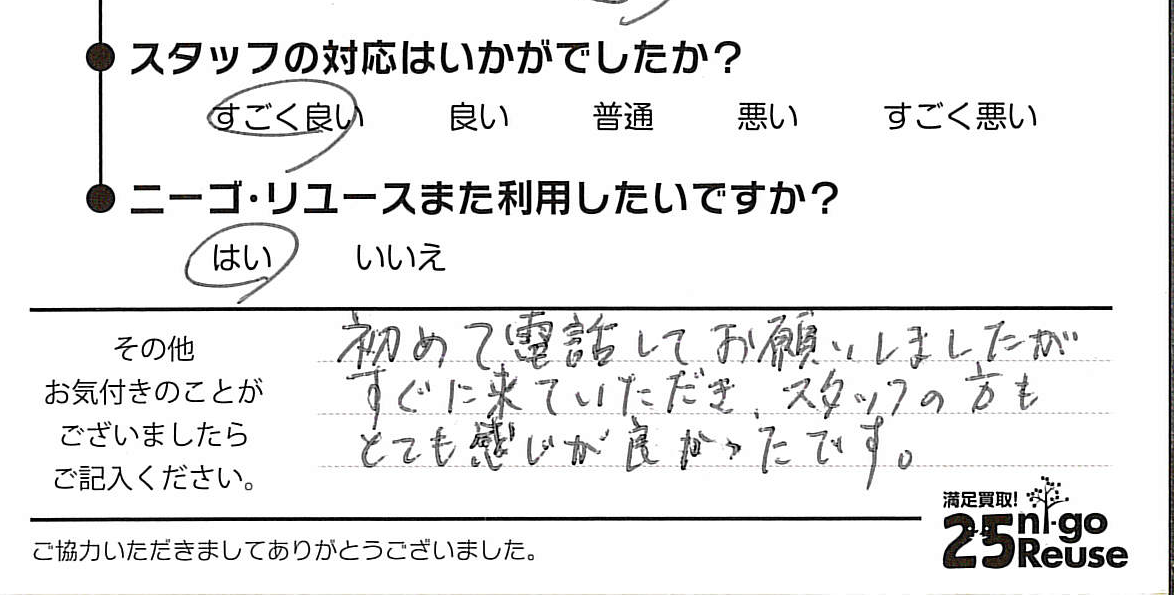 スタッフの対応はいかがでしたか？
すごく良い 良い 普通 悪い すごく悪い
ニーゴ・リユースまた利用したいですか？
はい いいえ
その他
お気付きのことが
ございましたら
ご記入ください。
初めて電話してお願いしましたが
すぐに来ていただき、スタッフの方も
とても感じが良かったです。
満足買取！
25 ni-go
Reuse
ご協力いただきましてありがとうございました。